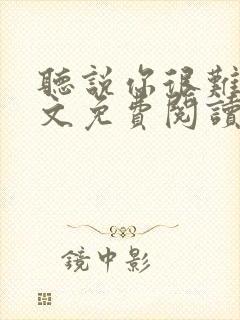 聽說你很難
文免費閱讀
鏡中影